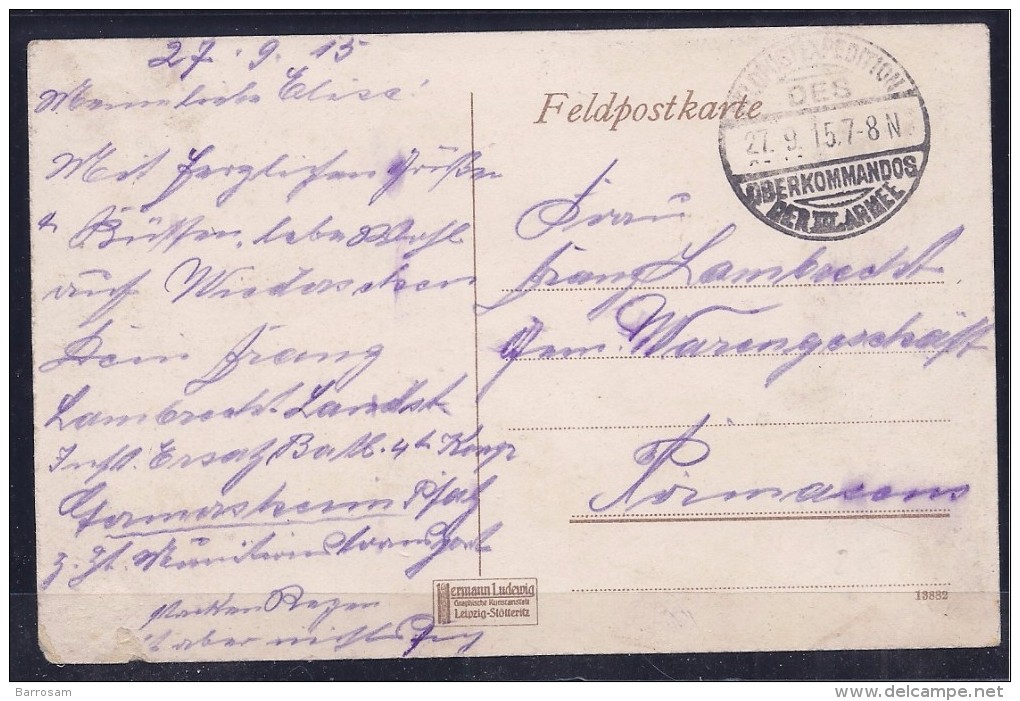 27. 9. 15
Meine liebe Elise!
Mit herzlichen Grüßen
u Küssen, lebe Wohl
auf Wiedersehen
Dein Franz
Lambrecht Landst.
Inft. Ersatz Batl. 4te Komp
Germersheim Pfalz
z. Zt. Munitionstransport
starken Regen
aber nichts
Feldpostkarte
FELDPOSTEXPEDITION
DES
27. 9. 15. 7-8 N
OBERKOMMANDOS
DER III. ARMEE
Frau
Franz Lambrecht
Gem. Warengeschäft
Pirmasens
Hermann Ludewig
Graphische Kunstanstalt
Leipzig-Stötteritz
13882
Barrosam
delcampe.net